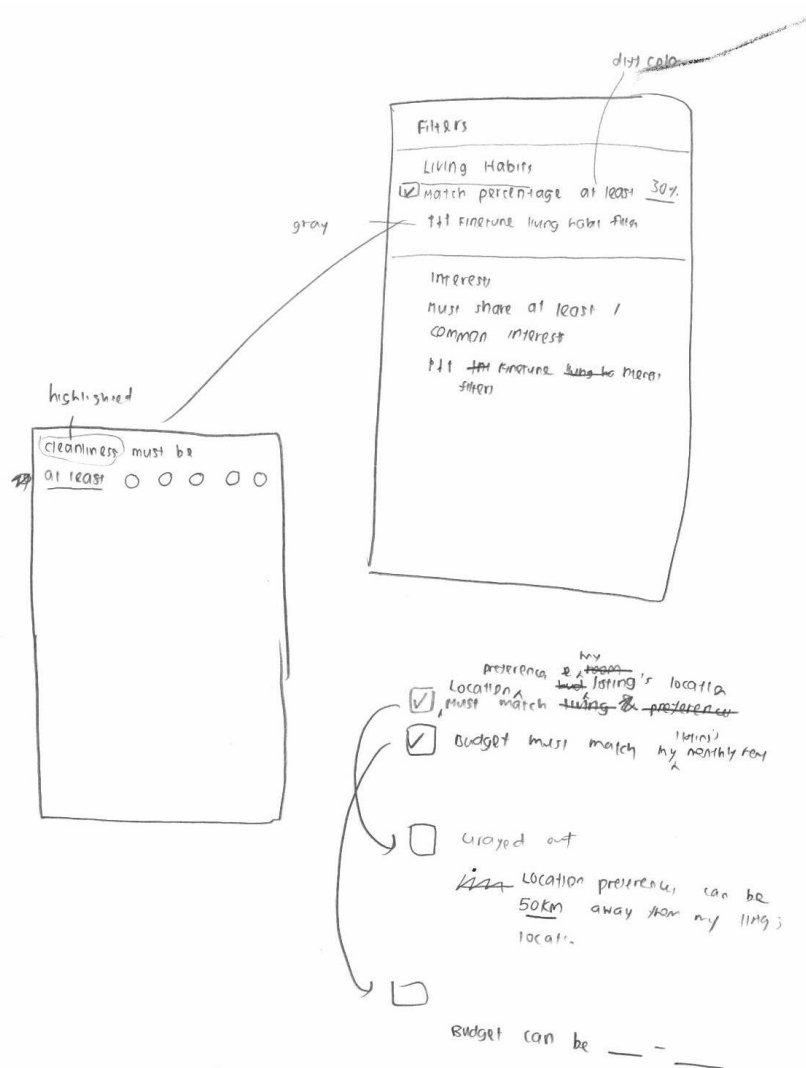 diff color
Filters
Living Habits
Match percentage at least 30%
gray
Finetune living habit filter
Interests
Must share at least 1
common interest
Finetune
filters
highlighted
cleanliness must be
at least
my
preference &
Location listing's location
Must match
Budget must match my listing's monthly rent
Grayed out
Location preference can be
50km away from my
Budget can be __ - __